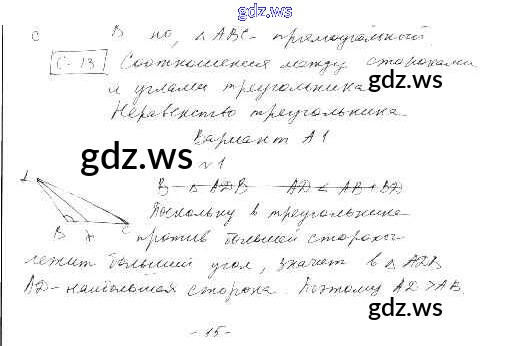 gdz.ws
С В но, △ABC - прямоугольный.
С-13 Соотношения между сторонами
и углами треугольника.
Неравенство треугольника.
Вариант А1
№1
gdz.ws
В △ ADB AD < AB + BD
Поскольку в треугольнике
B D C против большей стороны
лежит больший угол, значит в △ ADB
AD - наибольшая сторона. Поэтому AD > AB.
- 15 -
gdz.ws
gdz.ws
gdz.ws